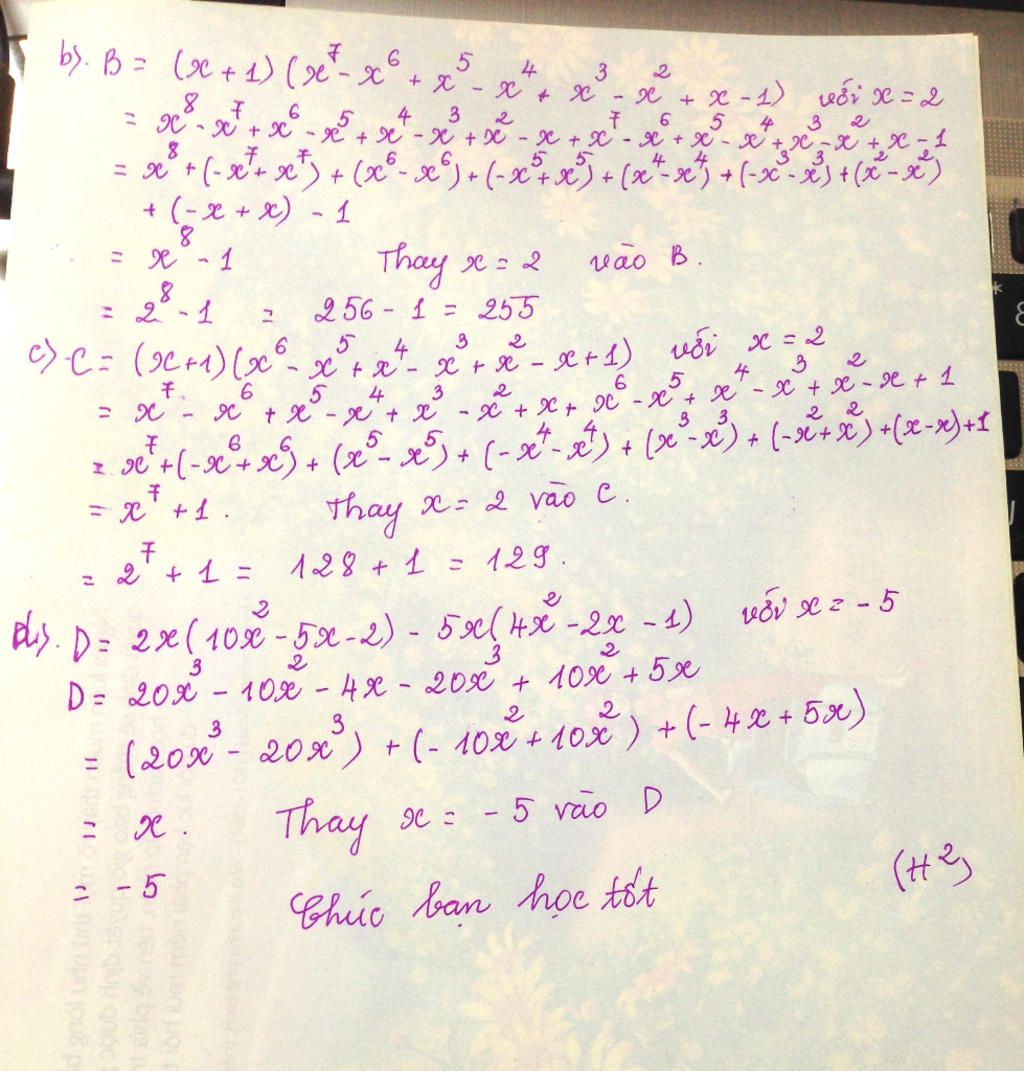 b). B = (x + 1) (x⁷ - x⁶ + x⁵ - x⁴ + x³ - x² + x - 1) với x = 2
= x⁸ - x⁷ + x⁶ - x⁵ + x⁴ - x³ + x² - x + x⁷ - x⁶ + x⁵ - x⁴ + x³ - x² + x - 1
= x⁸ + (-x⁷ + x⁷) + (x⁶ - x⁶) + (-x⁵ + x⁵) + (x⁴ - x⁴) + (-x³ - x³) + (x² - x²)
+ (-x + x) - 1
= x⁸ - 1 Thay x = 2 vào B.
= 2⁸ - 1 = 256 - 1 = 255
c) C = (x + 1) (x⁶ - x⁵ + x⁴ - x³ + x² - x + 1) với x = 2
= x⁷ - x⁶ + x⁵ - x⁴ + x³ - x² + x + x⁶ - x⁵ + x⁴ - x³ + x² - x + 1
= x⁷ + (-x⁶ + x⁶) + (x⁵ - x⁵) + (-x⁴ - x⁴) + (x³ - x³) + (-x² + x²) + (x - x) + 1
= x⁷ + 1. Thay x = 2 vào C.
= 2⁷ + 1 = 128 + 1 = 129.
D = 2x (10x² - 5x - 2) - 5x (4x² - 2x - 1) với x = - 5
D = 20x³ - 10x² - 4x - 20x³ + 10x² + 5x
= (20x³ - 20x³) + (- 10x² + 10x²) + (- 4x + 5x)
= x. Thay x = - 5 vào D
= - 5 Chúc bạn học tốt (H²)